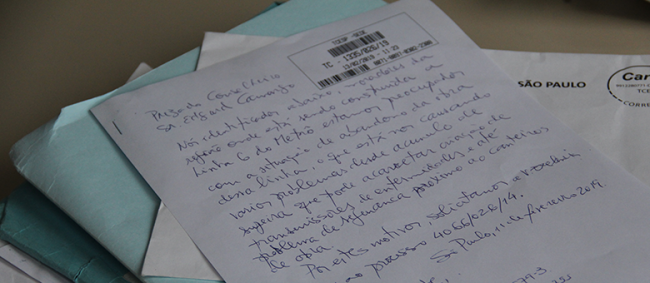 TCESP -GCDR
TC - 1335/026/19
13/02/2019 - 11:23
Prezado Conselheiro
Sr. Edgard Camargo
Nós identificados abaixo, moradores da
região onde está sendo construída a
Linha 6 do Metrô estamos preocupados
com a situação de abandono da obra
dessa linha, o que está nos causando
vários problemas desde acúmulo de
sujeira que pode acarretar aumento de
transmissões de enfermidades e até
problema de segurança próximo ao canteiros
de obra.
Por estes motivos, solicitamos a V. Excia
ao processo 4066/026/14.
São Paulo, 11 de fevereiro 2019.
79-3
SÃO PAULO
Car
TCE
CORRE